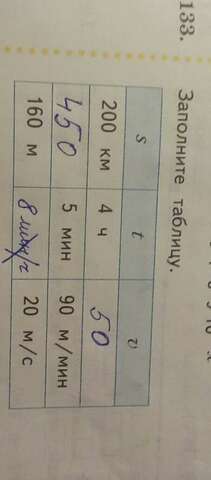 133.
Заполните таблицу.
s t v
200 км 4 ч 50
450 5 мин 90 м/мин
160 м 8 20 м/с